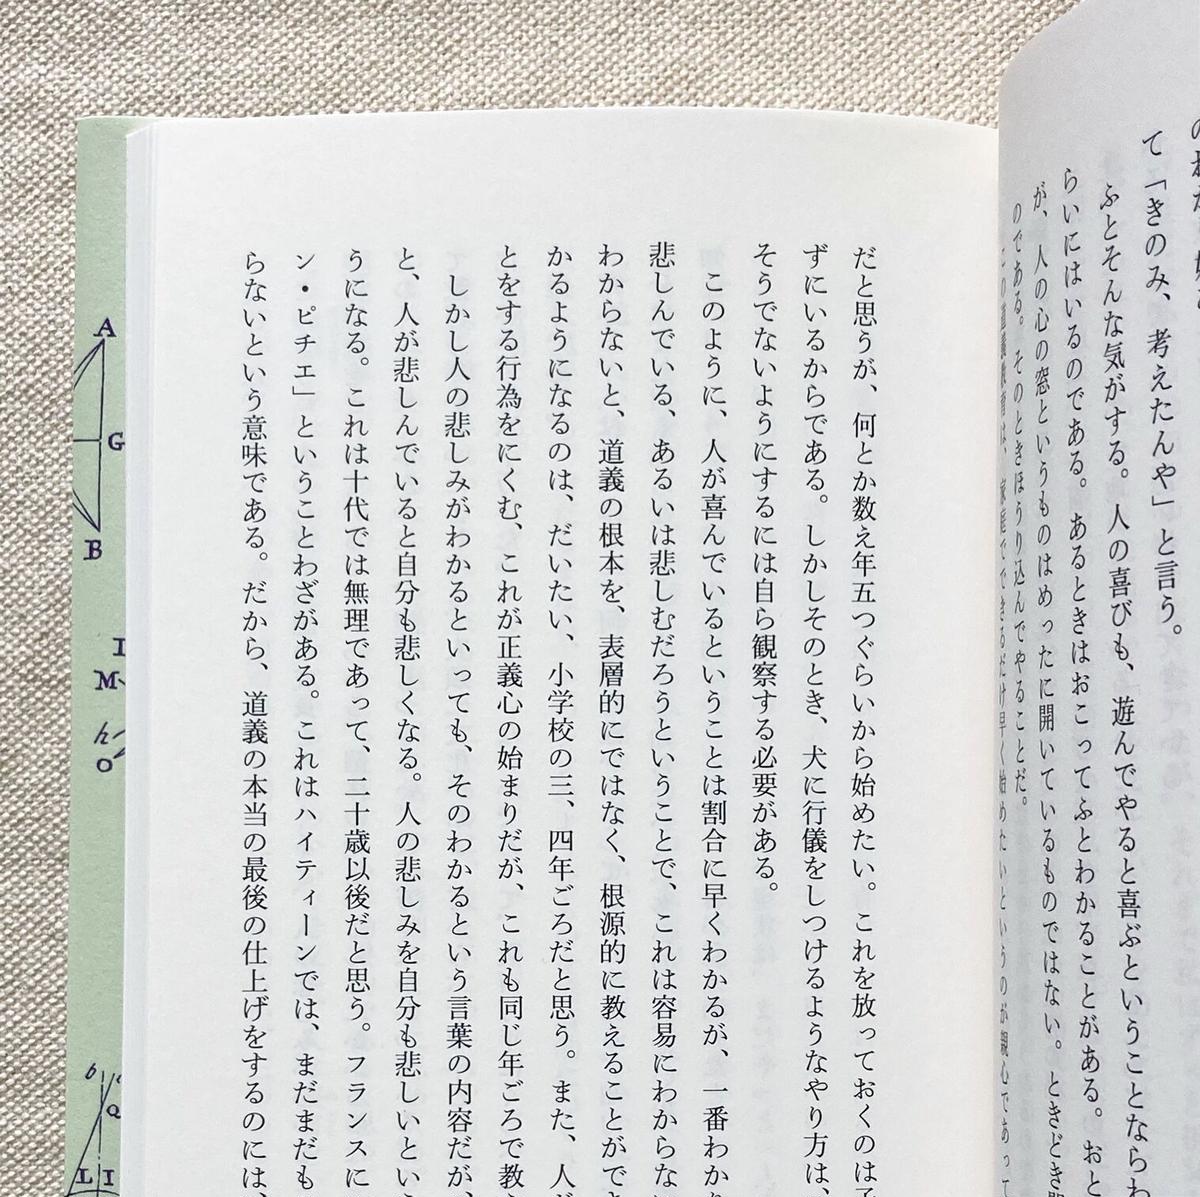 て「きのみ、考えたんや」と言う。
ふとそんな気がする。人の喜びも、遊んでやると喜ぶということならわ
らいにはいるのである。あるときはおこってふとわかることがある。おと
が、人の心の窓というものはめったに開いているものではない。ときどき
のである。そのときほうり込んでやることだ。
この道義教育は、家庭でできるだけ早く始めたいというのが親心であって
だと思うが、何とか数え年五つぐらいから始めたい。これを放っておくのは
ずにいるからである。しかしそのとき、犬に行儀をしつけるようなやり方は、
そうでないようにするには自ら観察する必要がある。
このように、人が喜んでいるということは割合に早くわかるが、一番わかり
悲しんでいる、あるいは悲しむだろうということで、これは容易にわからな
わからないと、道義の根本を、表層的にではなく、根源的に教えることができ
かるようになるのは、だいたい、小学校の三、四年ごろだと思う。また、人が
とをする行為をにくむ、これが正義心の始まりだが、これも同じ年ごろで教え
しかし人の悲しみがわかるといっても、そのわかるという言葉の内容だが、
と、人が悲しんでいると自分も悲しくなる。人の悲しみを自分も悲しいという
うになる。これは十代では無理であって、二十歳以後だと思う。フランスに
ン・ピチエ」ということわざがある。これはハイティーンでは、まだまだも
らないという意味である。だから、道義の本当の最後の仕上げをするのには、
A
G
B
I
M
h
O
b
Q
L I